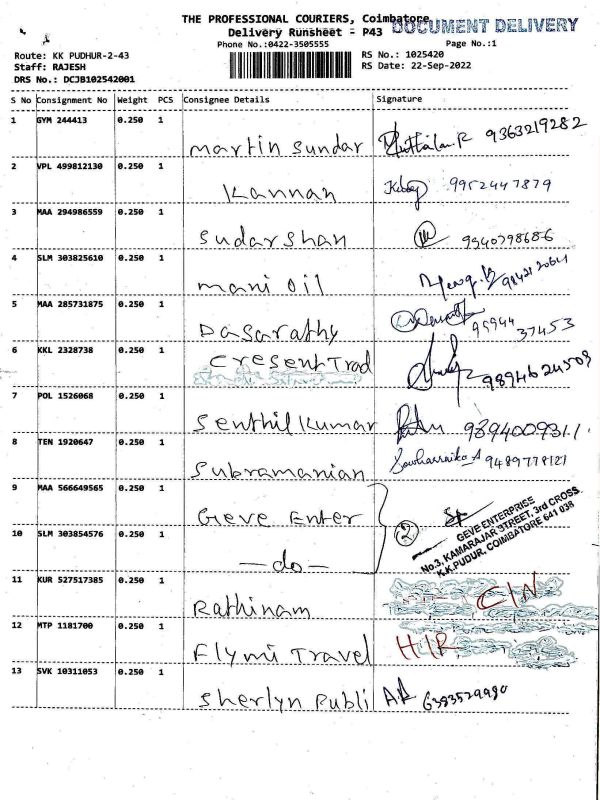 THE PROFESSIONAL COURIERS, Coimbatore
DOCUMENT DELIVERY
Delivery Runsheet - P43
Phone No.:0422-3505555
Page No.:1
Route: KK PUDHUR-2-43
RS No.: 1025420
Staff: RAJESH
RS Date: 22-Sep-2022
DRS No.: DCJB102542001
S No Consignment No Weight PCS Consignee Details Signature
1 GYM 244413 0.250 1
Martin Sundar 9363219282
2 VPL 499812130 0.250 1
Kannan 9952447879
3 MAA 294986559 0.250 1
Sudarshan 9940798686
4 SLM 303825610 0.250 1
Mani Oil
5 MAA 285731875 0.250 1
Dasarathy 95944 37453
6 KKL 2328738 0.250 1
Cresent Trad 9894624509
7 POL 1526068 0.250 1
Senthil Kumar 9894009311
8 TEN 1920647 0.250 1
Subramanian 9489778121
9 MAA 566649565 0.250 1
Geve Enter 2
GEVE ENTERPRISE
No.3, KAMARAJAR STREET, 3rd CROSS
K.K.PUDUR, COIMBATORE 641 038
10 SLM 303854576 0.250 1
-do-
11 KUR 527517385 0.250 1
Rathinam C/N
12 MTP 1181700 0.250 1
Flymi Travel H/R
13 SVK 10311053 0.250 1
Sherlyn Publi 6383529980